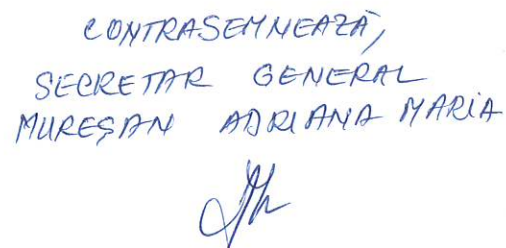 CONTRASEMNEAZĂ,
SECRETAR GENERAL
MUREȘAN ADRIANA MARIA